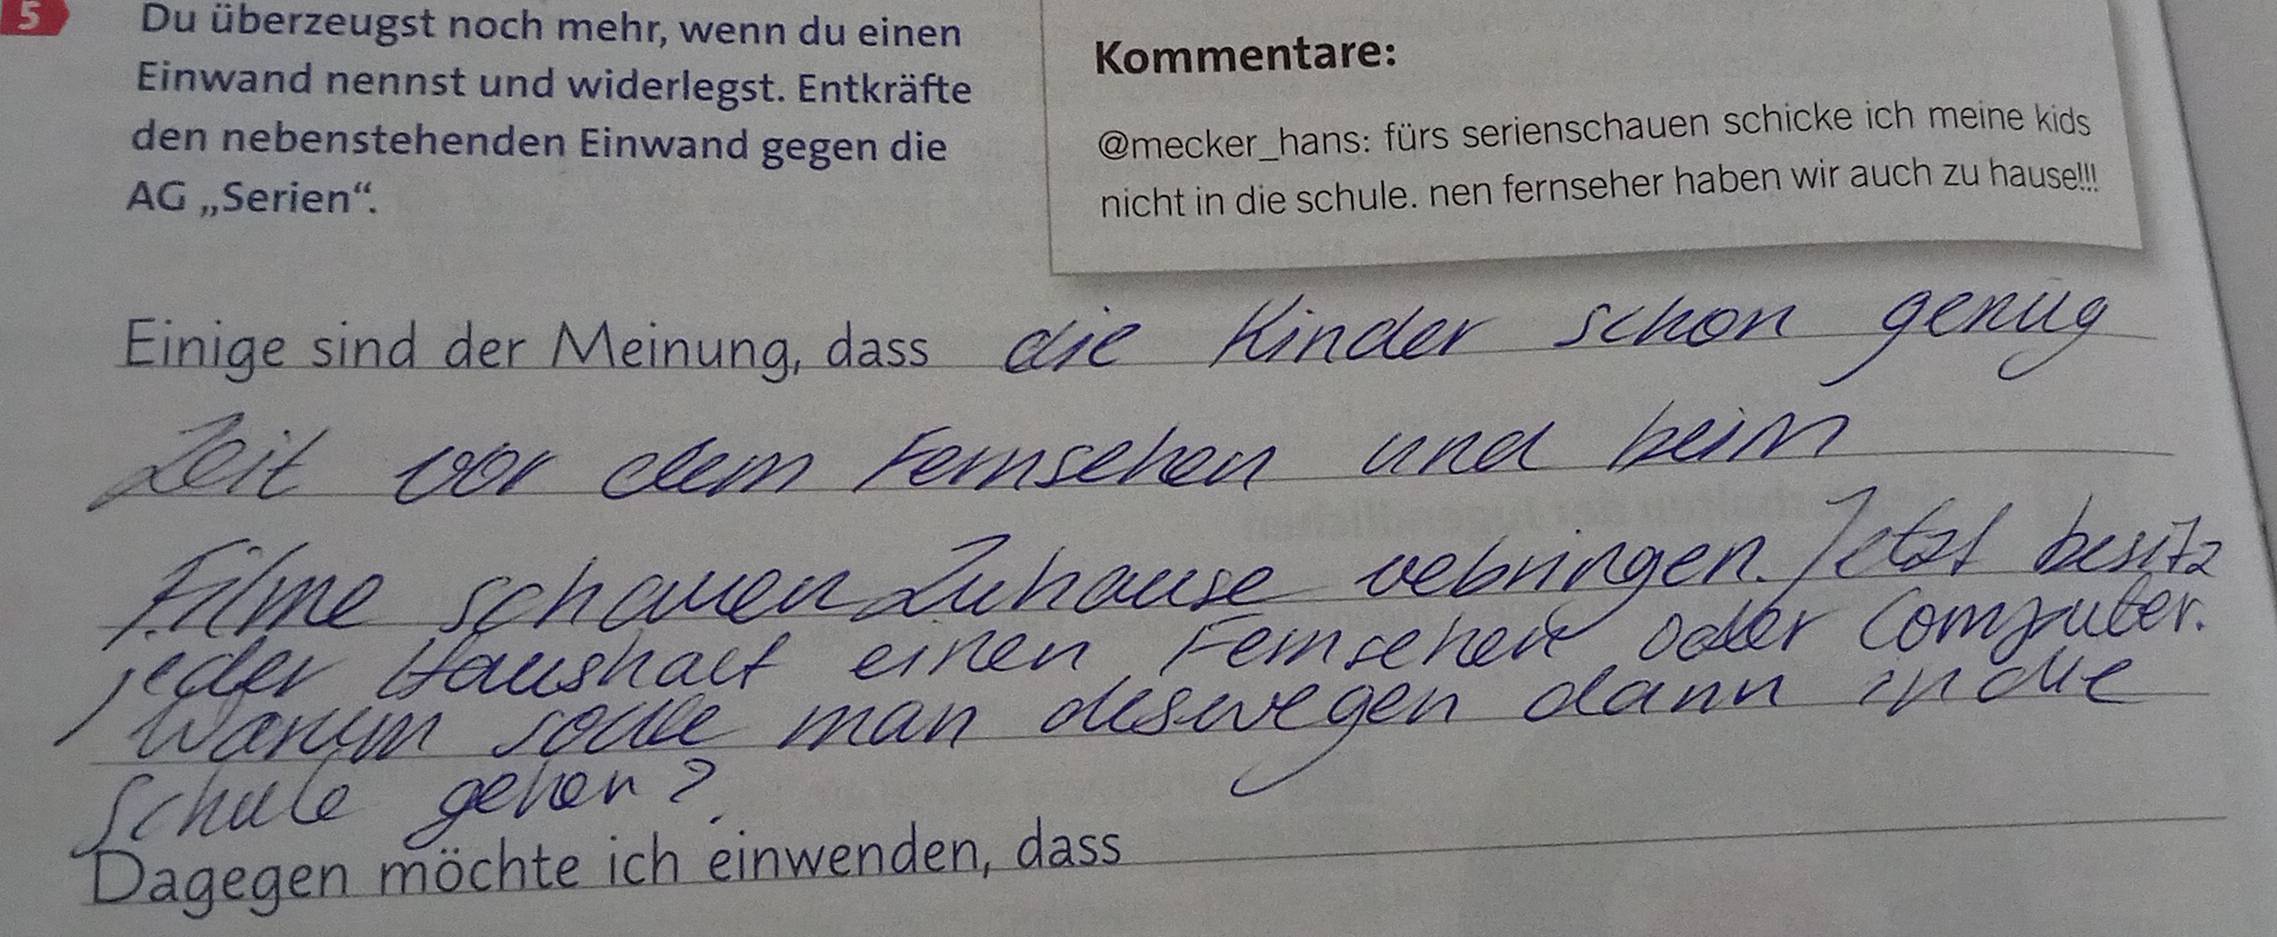 5
Du überzeugst noch mehr, wenn du einen
Einwand nennst und widerlegst. Entkräfte
den nebenstehenden Einwand gegen die
AG „Serien“.
Kommentare:
@mecker_hans: fürs serienschauen schicke ich meine kids
nicht in die schule. nen fernseher haben wir auch zu hause!!!
Einige sind der Meinung, dass die Kinder schon genug
Zeit vor dem Fernsehen und beim
Filme schauen Zuhause vebringen. Jetzt besitz
jeder Haushalt einen Fernseher oder Computer.
Warum sollte man deswegen dann in die
Schule gehen?
Dagegen möchte ich einwenden, dass